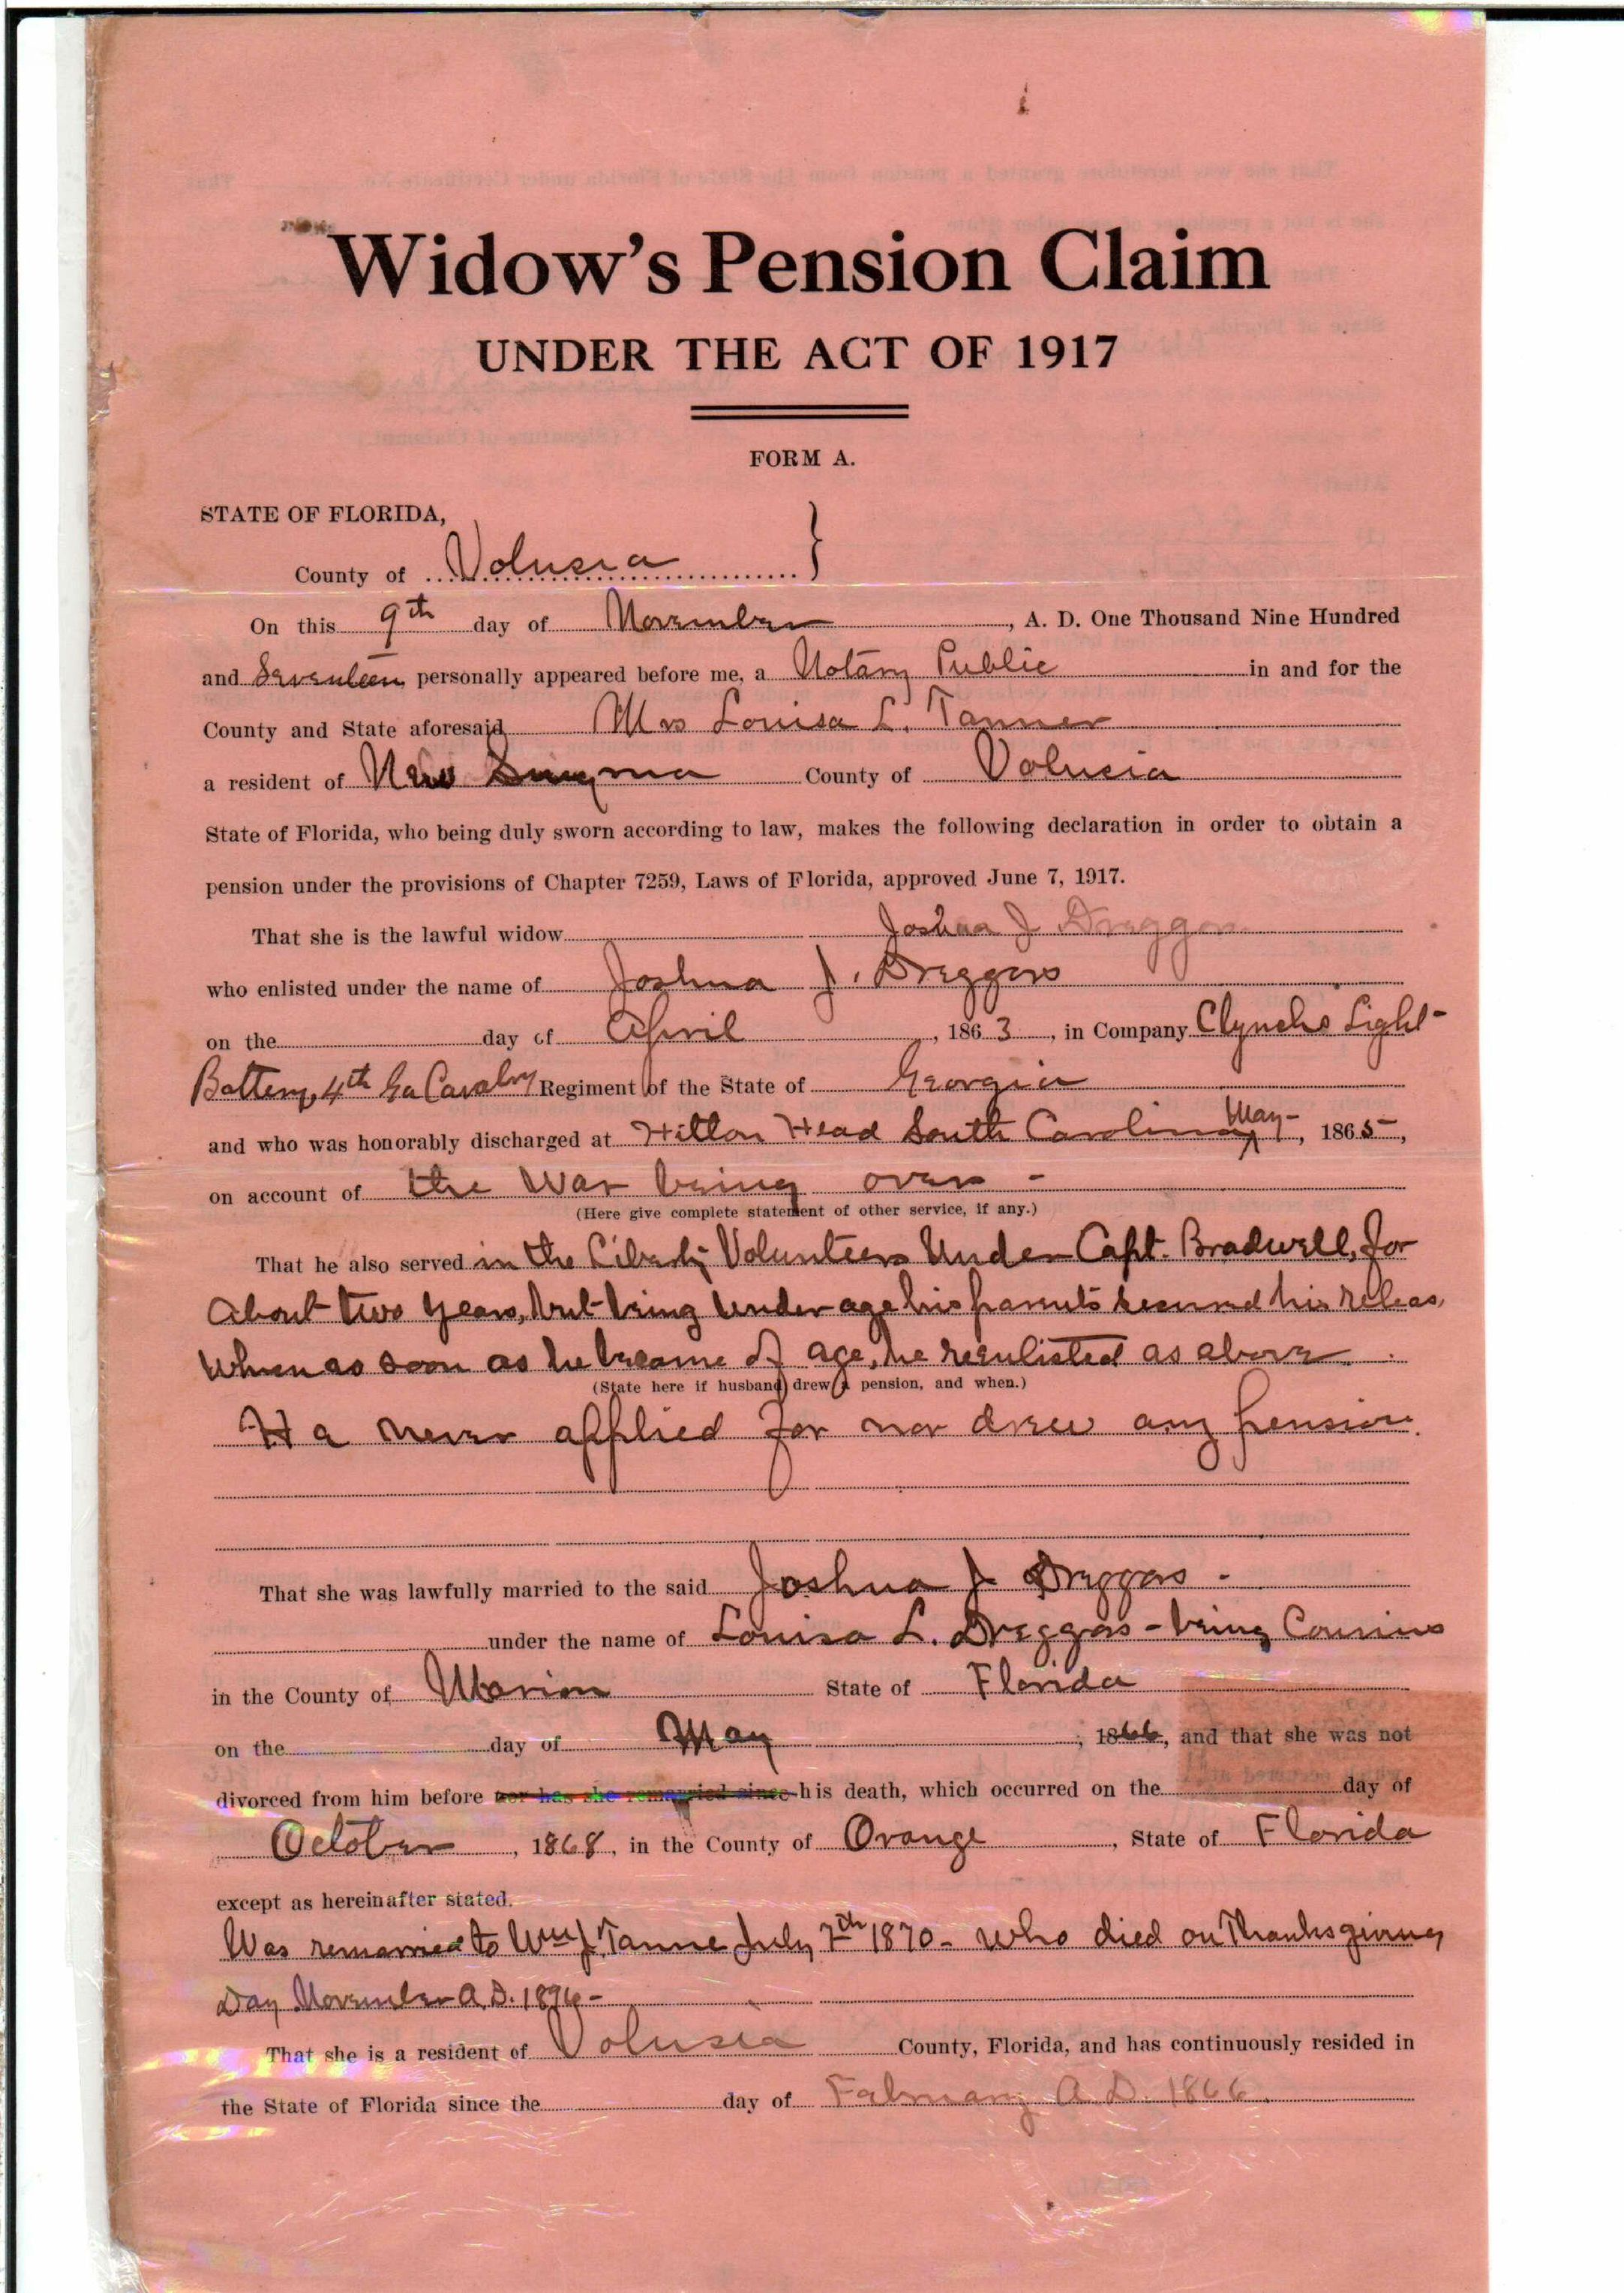 Widow's Pension Claim
UNDER THE ACT OF 1917
FORM A.
STATE OF FLORIDA,
County of Volusia
On this 9th day of November, A. D. One Thousand Nine Hundred
and Seventeen personally appeared before me, a Notary Public in and for the
County and State aforesaid Mrs Louisa L. Tanner
a resident of New Smyrna County of Volusia
State of Florida, who being duly sworn according to law, makes the following declaration in order to obtain a
pension under the provisions of Chapter 7259, Laws of Florida, approved June 7, 1917.
That she is the lawful widow Joshua J Dreggors
who enlisted under the name of Joshua J. Dreggors
on the day of April, 1863, in Company Clynchs Light-
Battery, 4th Ga Cavalry Regiment of the State of Georgia
and who was honorably discharged at Hilton Head South Carolina May-, 1865-,
on account of the War being over -
(Here give complete statement of other service, if any.)
That he also served in the Liberty Volunteers Under Capt. Bradwell, for
About two years, but being under age his parents secured his releas,
When as soon as he became of age, he reenlisted as above.
(State here if husband drew a pension, and when.)
He never applied for nor drew any pension.
That she was lawfully married to the said Joshua J Dreggors -
under the name of Louisa L. Dreggors - being Cousins
in the County of Marion State of Florida
on the day of May, 1866, and that she was not
divorced from him before nor has she remarried since his death, which occurred on the day of
October, 1868, in the County of Orange, State of Florida
except as hereinafter stated.
Was remarried to Wm J. Tanne July 7th 1870 - who died on Thanksgiving
Day November A.D. -
That she is a resident of Volusia County, Florida, and has continuously resided in
the State of Florida since the day of February A.D. 1866.